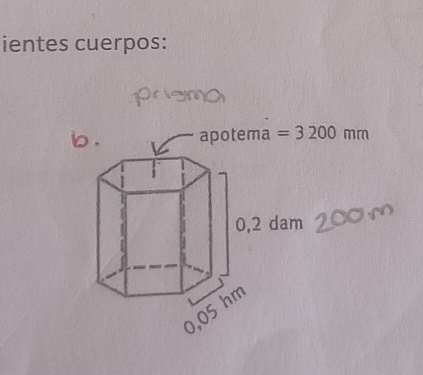 ientes cuerpos:
prisma
b.
apotema = 3 200 mm
0,2 dam 200m
0,05 hm